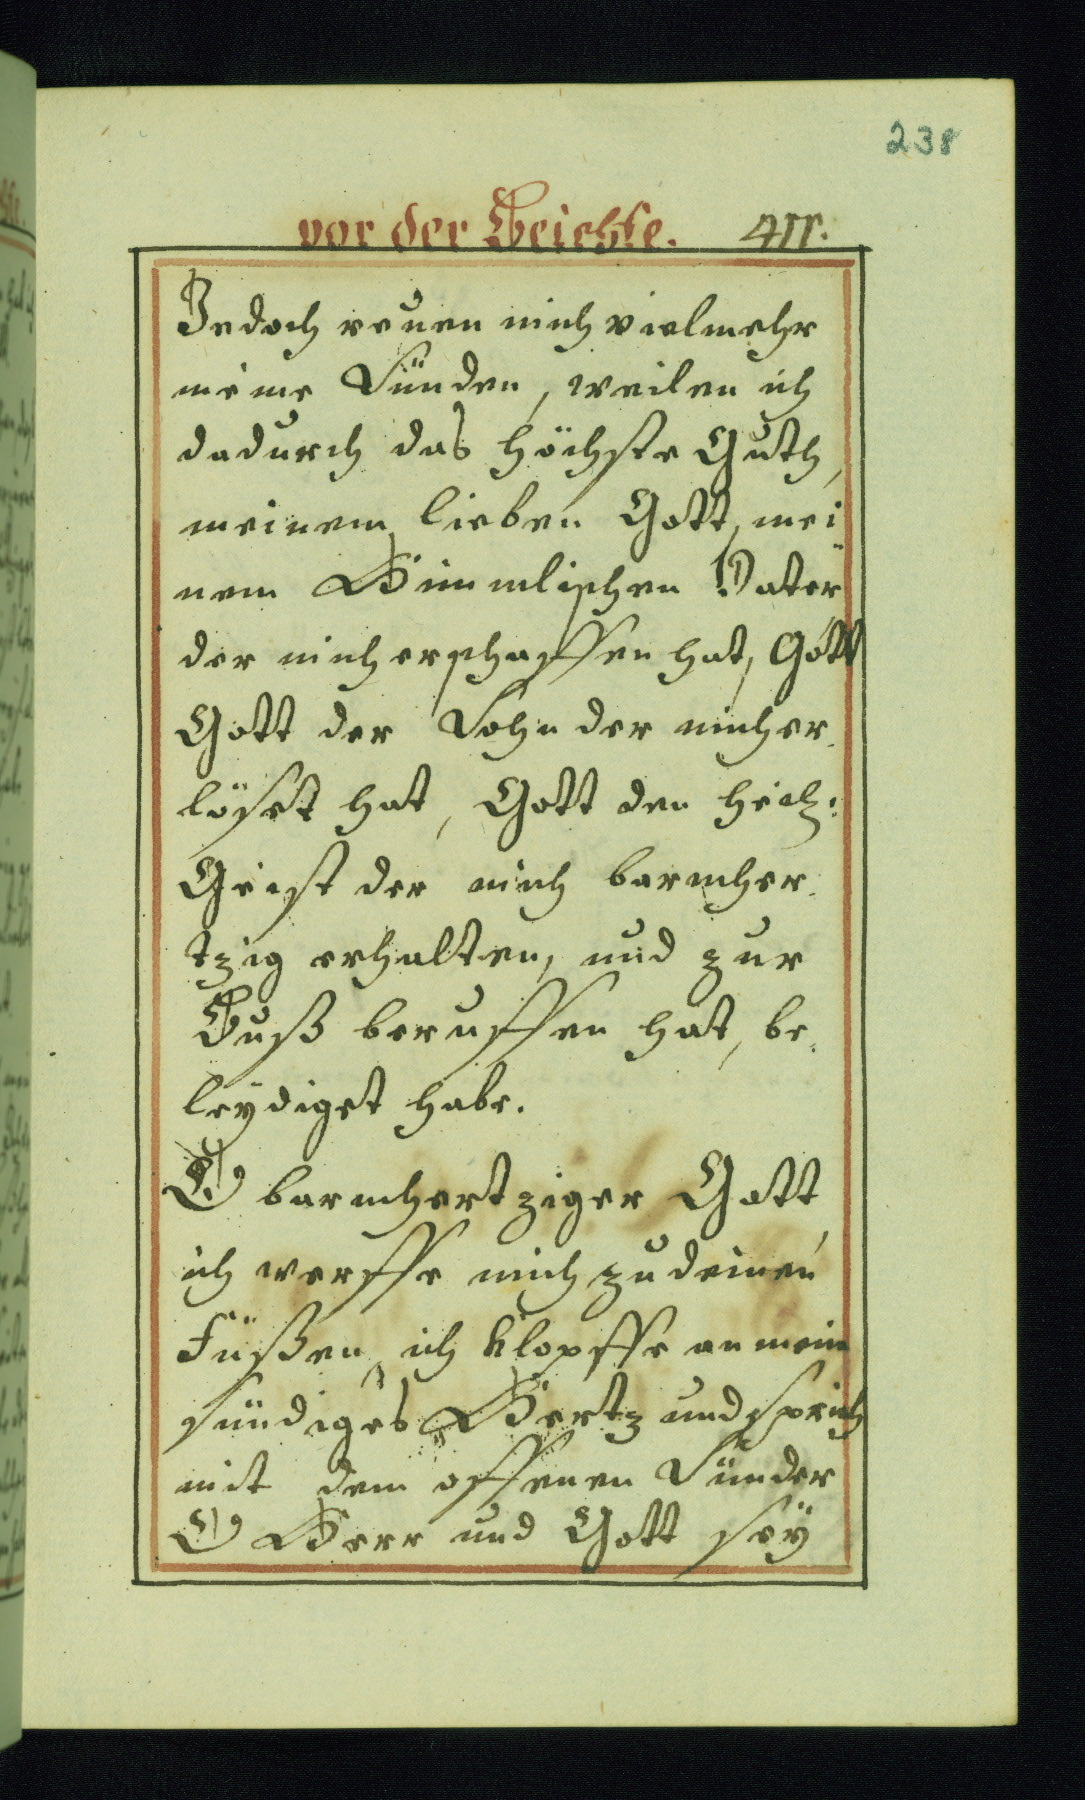 238
vor der Beichte. 411.
Jedoch reuen mich vielmehr
meine Sünden, weilen ich
dadurch das höchste Guth,
meinem lieben Gott, mei
nem Himmlischen Vater
der mich erschaffen hat, Gott
Gott der Sohn der mich er
löset hat, Gott den heil:
Geist der mich barmher
tzig erhalten, und zur
Buß beruffen hat, be
leÿdiget habe.
O barmhertziger Gott,
ich werffe mich zu deinen
Füßen, ich klopffe an mein
sündiges Hertz und sprich
mit dem offenen Sünder
O Herr und Gott seÿ